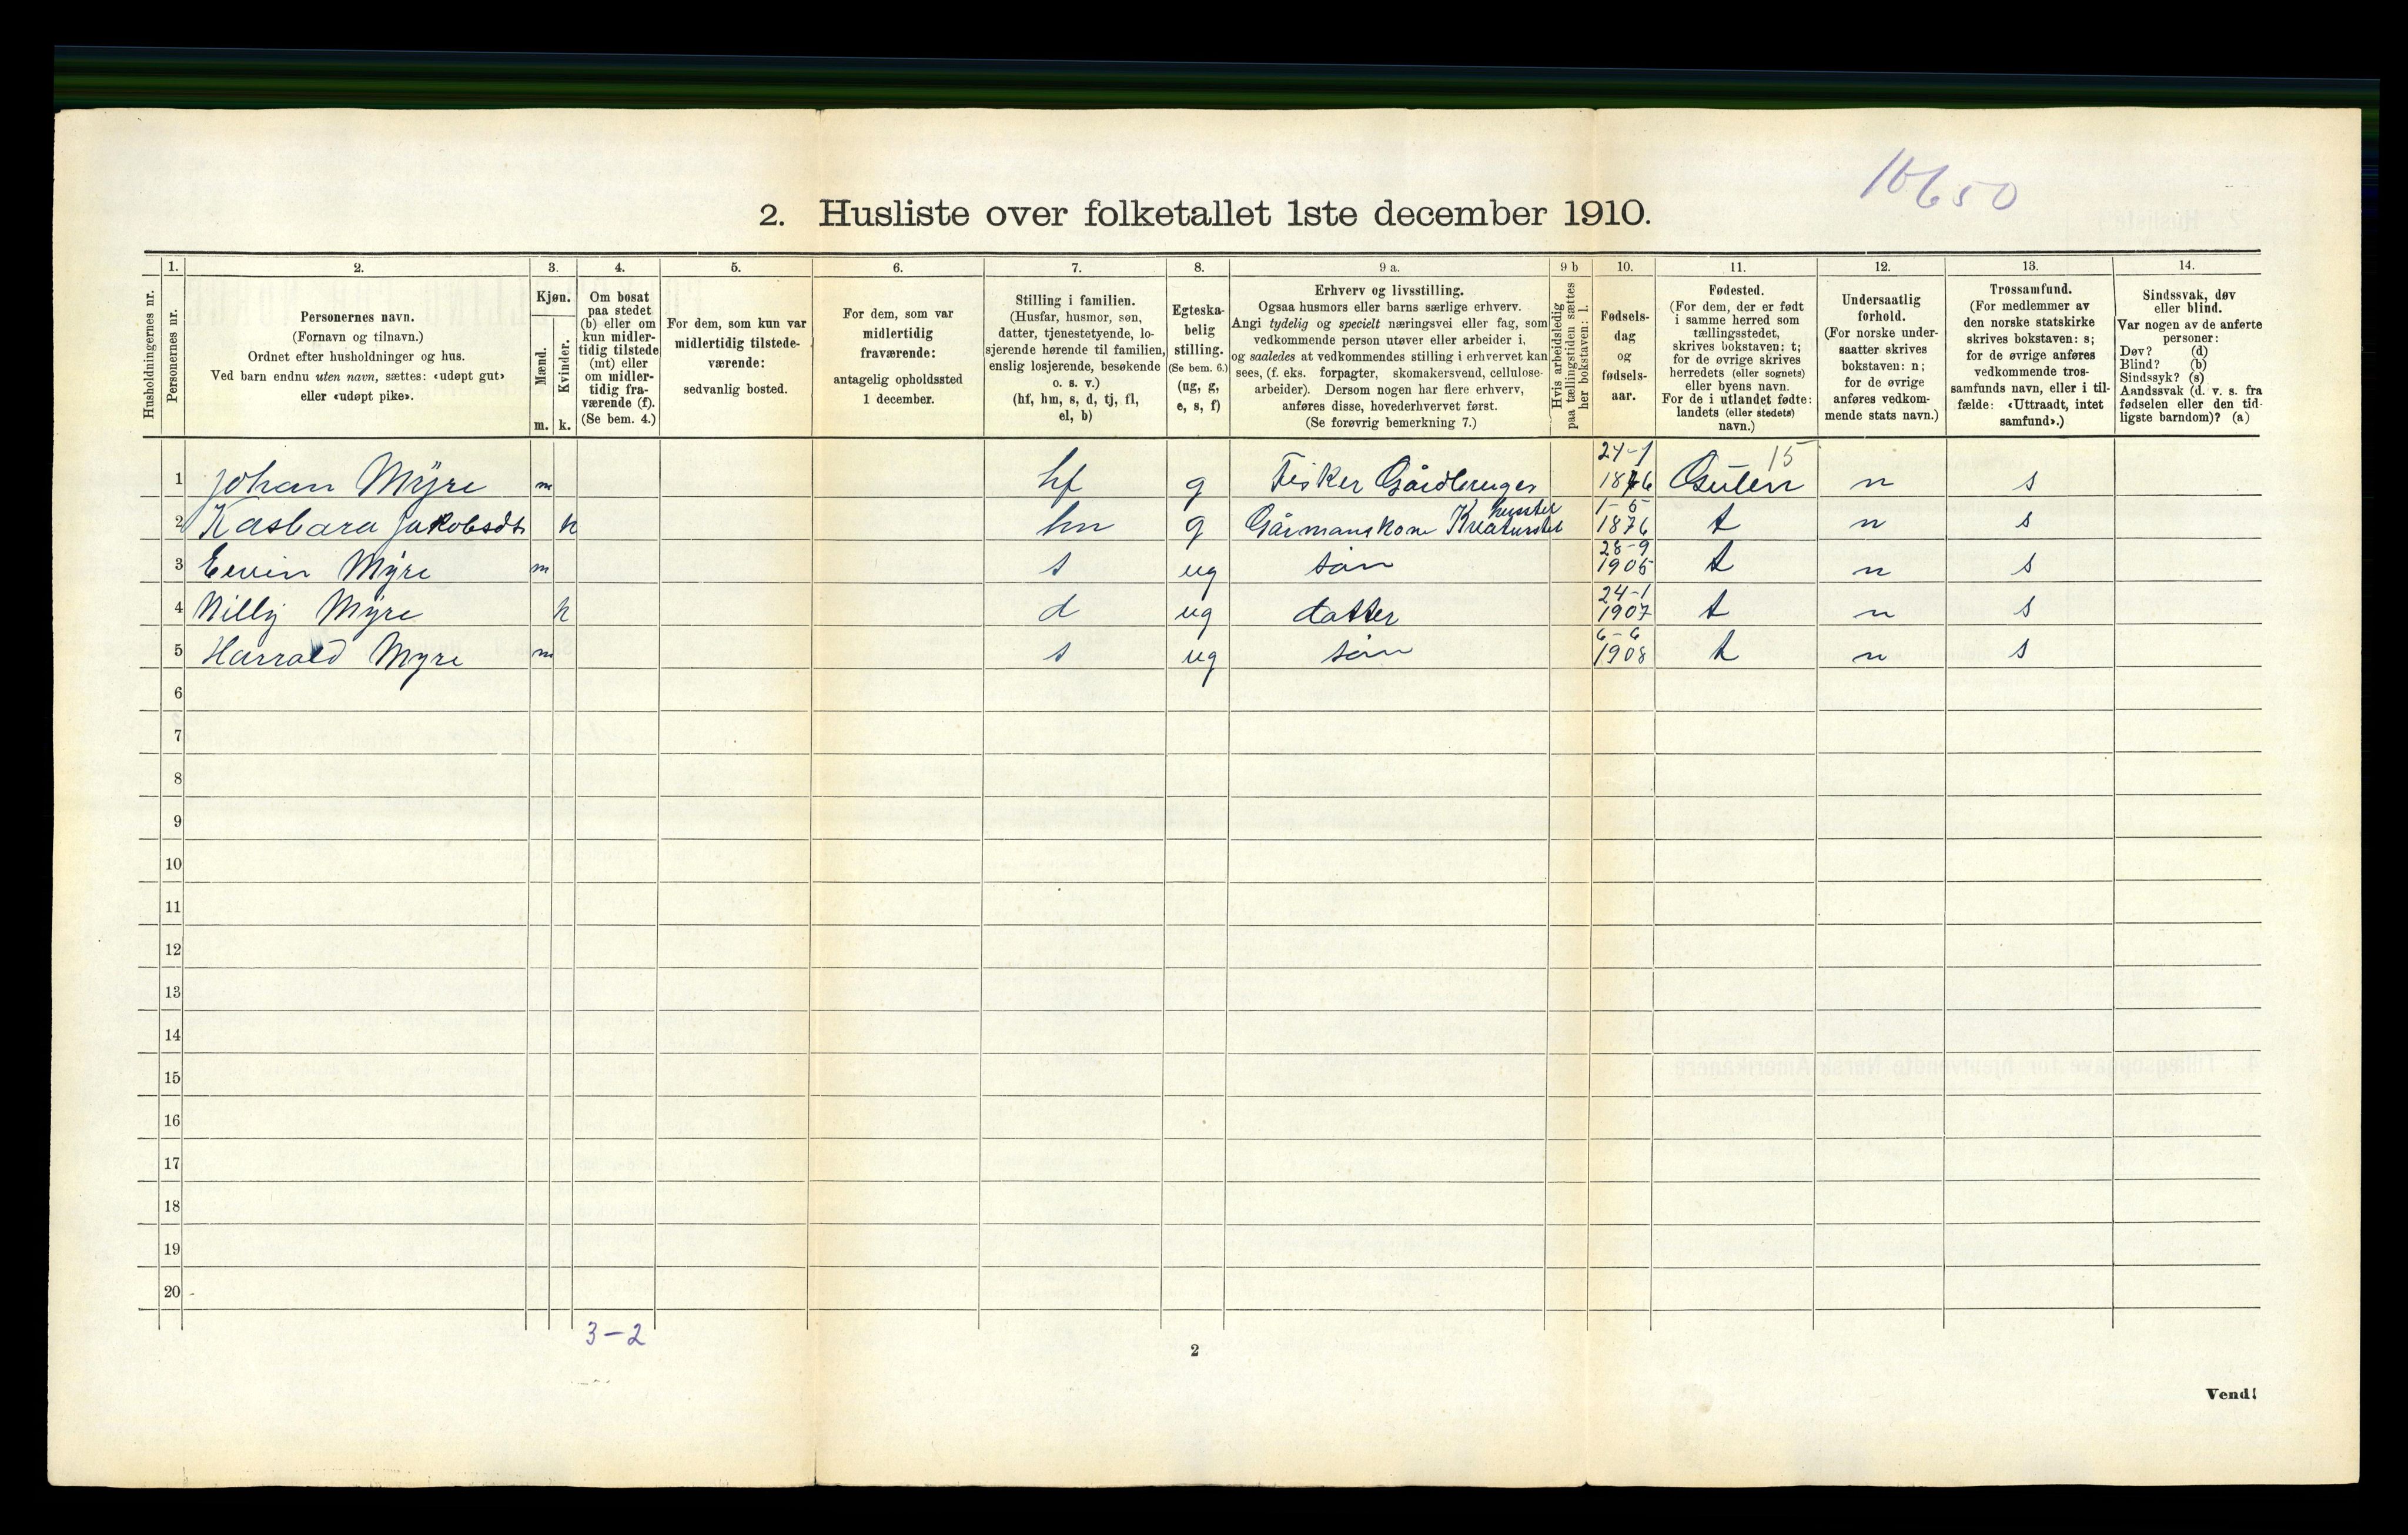 10650
2. Husliste over folketallet 1ste december 1910.
1. 2. 3. 4. 5. 6. 7. 8. 9 a. 9 b 10. 11. 12. 13. 14.
Husholdningernes nr.
Personernes nr.
Personernes navn.
(Fornavn og tilnavn.)
Ordnet efter husholdninger og hus.
Ved barn endnu uten navn, sættes: «udøpt gut»
eller «udøpt pike».
Kjøn.
Mænd.
Kvinder.
m. k.
Om bosat
paa stedet
(b) eller om
kun midler-
tidig tilstede
(mt) eller
om midler-
tidig fra-
værende (f).
(Se bem. 4.)
For dem, som kun var
midlertidig tilstede-
værende:
sedvanlig bosted.
For dem, som var
midlertidig
fraværende:
antagelig opholdssted
1 december.
Stilling i familien.
(Husfar, husmor, søn,
datter, tjenestetyende, lo-
sjerende hørende til familien,
enslig losjerende, besøkende
o. s. v.)
(hf, hm, s, d, tj, fl,
el, b)
Egteska-
belig
stilling.
(Se bem. 6.)
(ug, g,
e, s, f)
Erhverv og livsstilling.
Ogsaa husmors eller barns særlige erhverv.
Angi tydelig og specielt næringsvei eller fag, som
vedkommende person utøver eller arbeider i,
og saaledes at vedkommendes stilling i erhvervet kan
sees, (f. eks. forpagter, skomakersvend, cellulose-
arbeider). Dersom nogen har flere erhverv,
anføres disse, hovederhvervet først.
(Se forøvrig bemerkning 7.)
Hvis arbeidsledig
paa tællingstiden sættes
her bokstaven: l.
Fødsels-
dag
og
fødsels-
aar.
Fødested.
(For dem, der er født
i samme herred som
tællingsstedet,
skrives bokstaven: t;
for de øvrige skrives
herredets (eller sognets)
eller byens navn.
For de i utlandet fødte:
landets (eller stedets)
navn.)
Undersaatlig
forhold.
(For norske under-
saatter skrives
bokstaven: n;
for de øvrige
anføres vedkom-
mende stats navn.)
Trossamfund.
(For medlemmer av
den norske statskirke
skrives bokstaven: s;
for de øvrige anføres
vedkommende tros-
samfunds navn, eller i til-
fælde: «Uttraadt, intet
samfund».)
Sindssvak, døv
eller blind.
Var nogen av de anførte
personer:
Døv? (d)
Blind? (b)
Sindssyk? (s)
Aandssvak (d. v. s. fra
fødselen eller den tid-
ligste barndom)? (a)
1 Johan Mÿre m hf g Fisker Gårdbruger 24-1 1876 Gulen 15 n s
2 Kasbara Jakobsdt k hm g Gårmanskone 1-5 1876 t n s
3 Eevin Mÿre m s ug søn 28-9 1905 t n s
4 Nilly Mÿre k d ug datter 24-1 1907 t n s
5 Harrald Myre m s ug søn 6-6 1908 t n s
6
7
8
9
10
11
12
13
14
15
16
17
18
19
20
3-2
2
Vend!